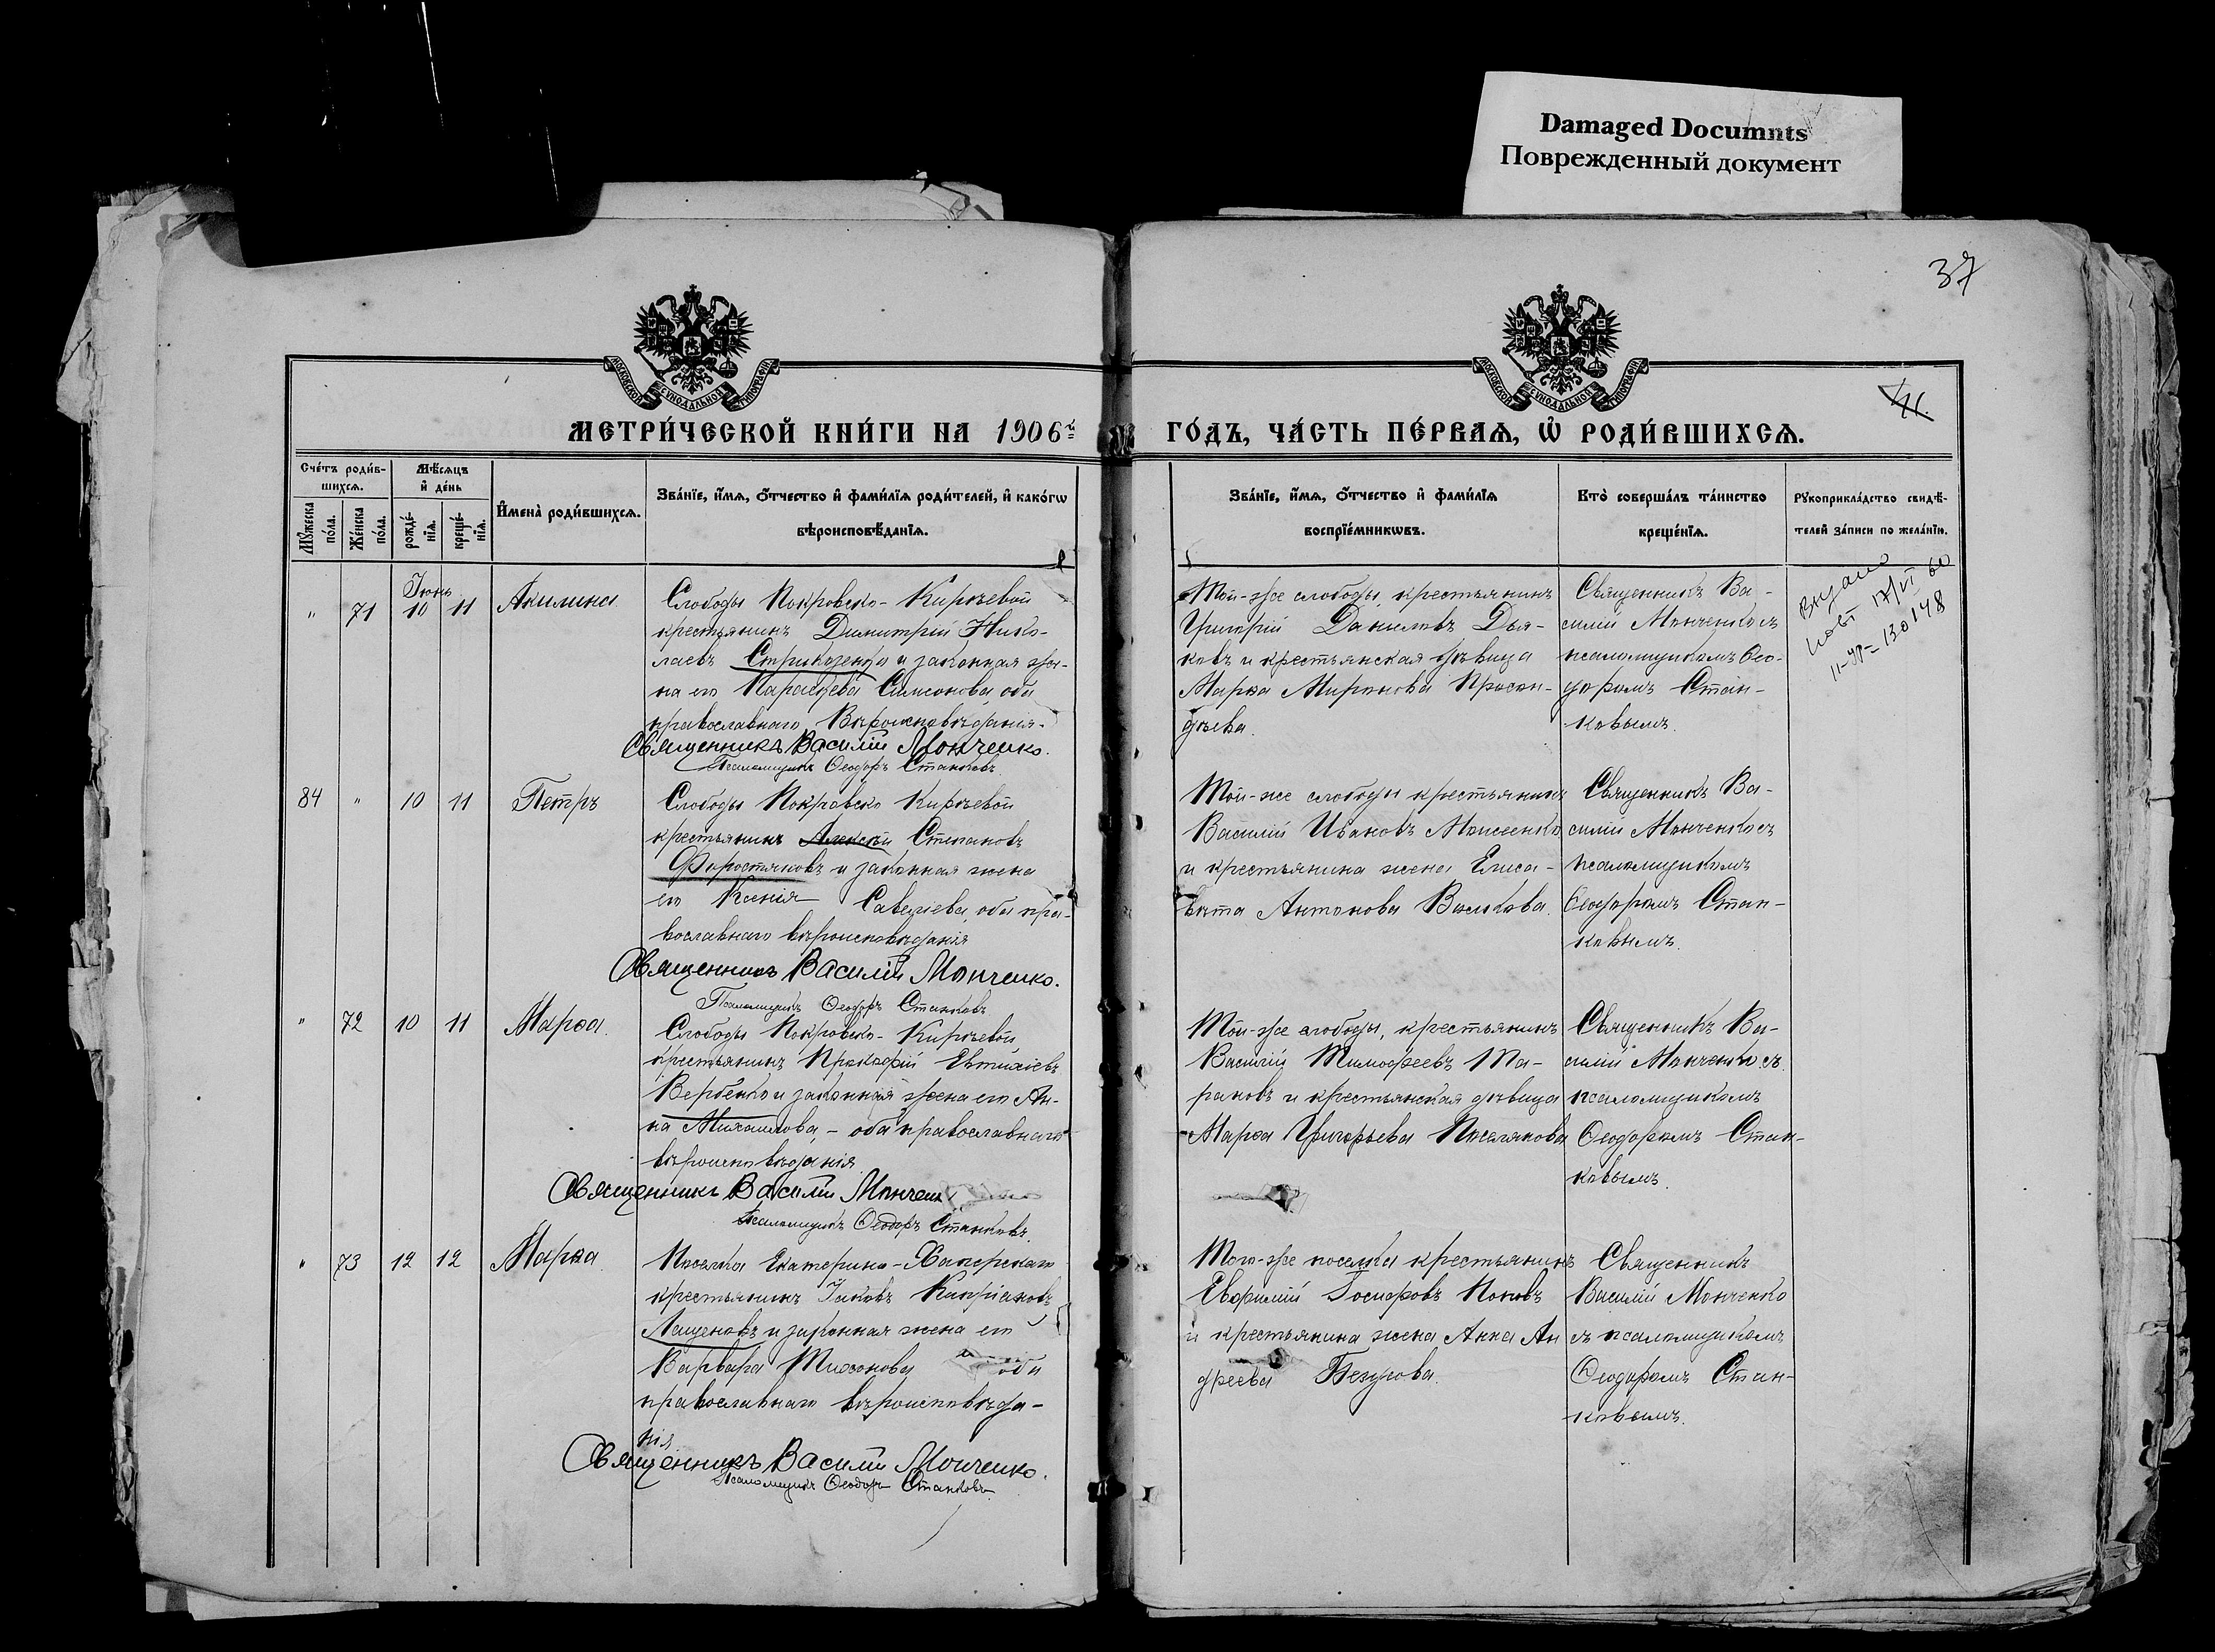 Damaged Documnts
Поврежденный документ
37
МОСКОВСКОЙ СѴНОДАЛЬНОЙ ТИПОГРАФІИ
МОСКОВСКОЙ СѴНОДАЛЬНОЙ ТИПОГРАФІИ
МЕТРИ́ЧЕСКОЙ КНИ́ГИ НА 1906й
ГО́ДЪ, ЧА́СТЬ ПЕ́РВАѦ, Ѡ РОДИ́ВШИХСѦ.
Сче́тъ роди́в-
шихсѧ.
Мѣ́сѧцъ
и҆ де́нь
Мꙋ́жеска
по́ла.
Же́нска
по́ла.
рожде́-
нїѧ.
креще́-
нїѧ.
И҆мена̀ роди́вшихсѧ.
Зва́нїе, и҆́мѧ, ѻ҆́тчество и҆ фами́лїѧ роди́телей, и҆ како́гѡ
вѣроисповѣ́данїѧ.
Зва́нїе, и҆́мѧ, ѻ҆́тчество и҆ фами́лїѧ
воспрїе́мникѡвъ.
Кто̀ соверша́лъ та́инство
креще́нїѧ.
Рꙋкоприкла́дство свидѣ́-
телей за́писи по жела́нїю.
Іюнь
" 71 10 11 Акилина
Слободы Покровско-Киреевой
крестьянинъ Димитрій Нико-
лаевъ Стрикоженко и законная же-
на его Параскева Симеонова, оба
православнаго вѣроисповѣданія.
Священникъ Василій Монченко.
Псаломщикъ Ѳеодоръ Станковъ.
Той-же слободы, крестьянинъ
Григорій Даниловъ Дья-
ковъ и крестьянская дѣвица
Марѳа Миронова Просян-
дѣева.
Священникъ Ва-
силій Мончєнко съ
псаломщикомъ Ѳео-
доромъ Стан-
ковымъ.
Выдано
17/VI 60
84 " 10 11 Петръ
Слободы Покровско Киреевой
крестьянинъ Алексѣй Степановъ
Форостяновъ и законная жена
его Ксенія Савеліева, оба пра-
вославнаго вѣроисповѣданія
Священникъ Василій Монченко.
Псаломщикъ Ѳеодоръ Станковъ
Той-же слободы крестьянинъ
Василій Ивановъ Моисеенко
и крестьянина жена Елиса-
вета Антонова Волкова.
Священникъ Ва-
силій Мончєнко съ
псаломщикомъ
Ѳеодоромъ Стан-
ковымъ.
" 72 10 11 Марѳа.
Слободы Покровско-Киреевой,
крестьянинъ Прокофій Евтихіевъ
Вербенко и законная жена его Ан-
на Михаилова, - оба православнаго
вѣроисповѣданія
Священникъ Василій Мончен
Псаломщикъ Ѳеодоръ Станковъ.
Той-же слободы, крестьянинъ
Василій Тимофеевъ Та-
рановъ и крестьянская дѣвица
Марѳа Григорьева Поселянова
Священникъ Ва-
силій Мончєнко съ
псаломщикомъ
Ѳеодоромъ Стан-
ковымъ.
" 73 12 12 Марѳа
Поселка Екатерино-Хаперскаго
крестьянинъ Іаковъ Кипріановъ
Лащеновъ и законная жена его
Варвара Тихонова оба
православнаго вѣроисповѣда-
нія.
Священникъ Василій Мончєнко.
Псаломщикъ Ѳеодоръ Станковъ.
Того-же поселка крестьянинъ
Евфимій Іосифовъ Поповъ
и крестьянина жена Анна Ан
дреева Безусова.
Священникъ
Василій Мончєнко
съ псаломщикомъ
Ѳеодоромъ Стан-
ковымъ.